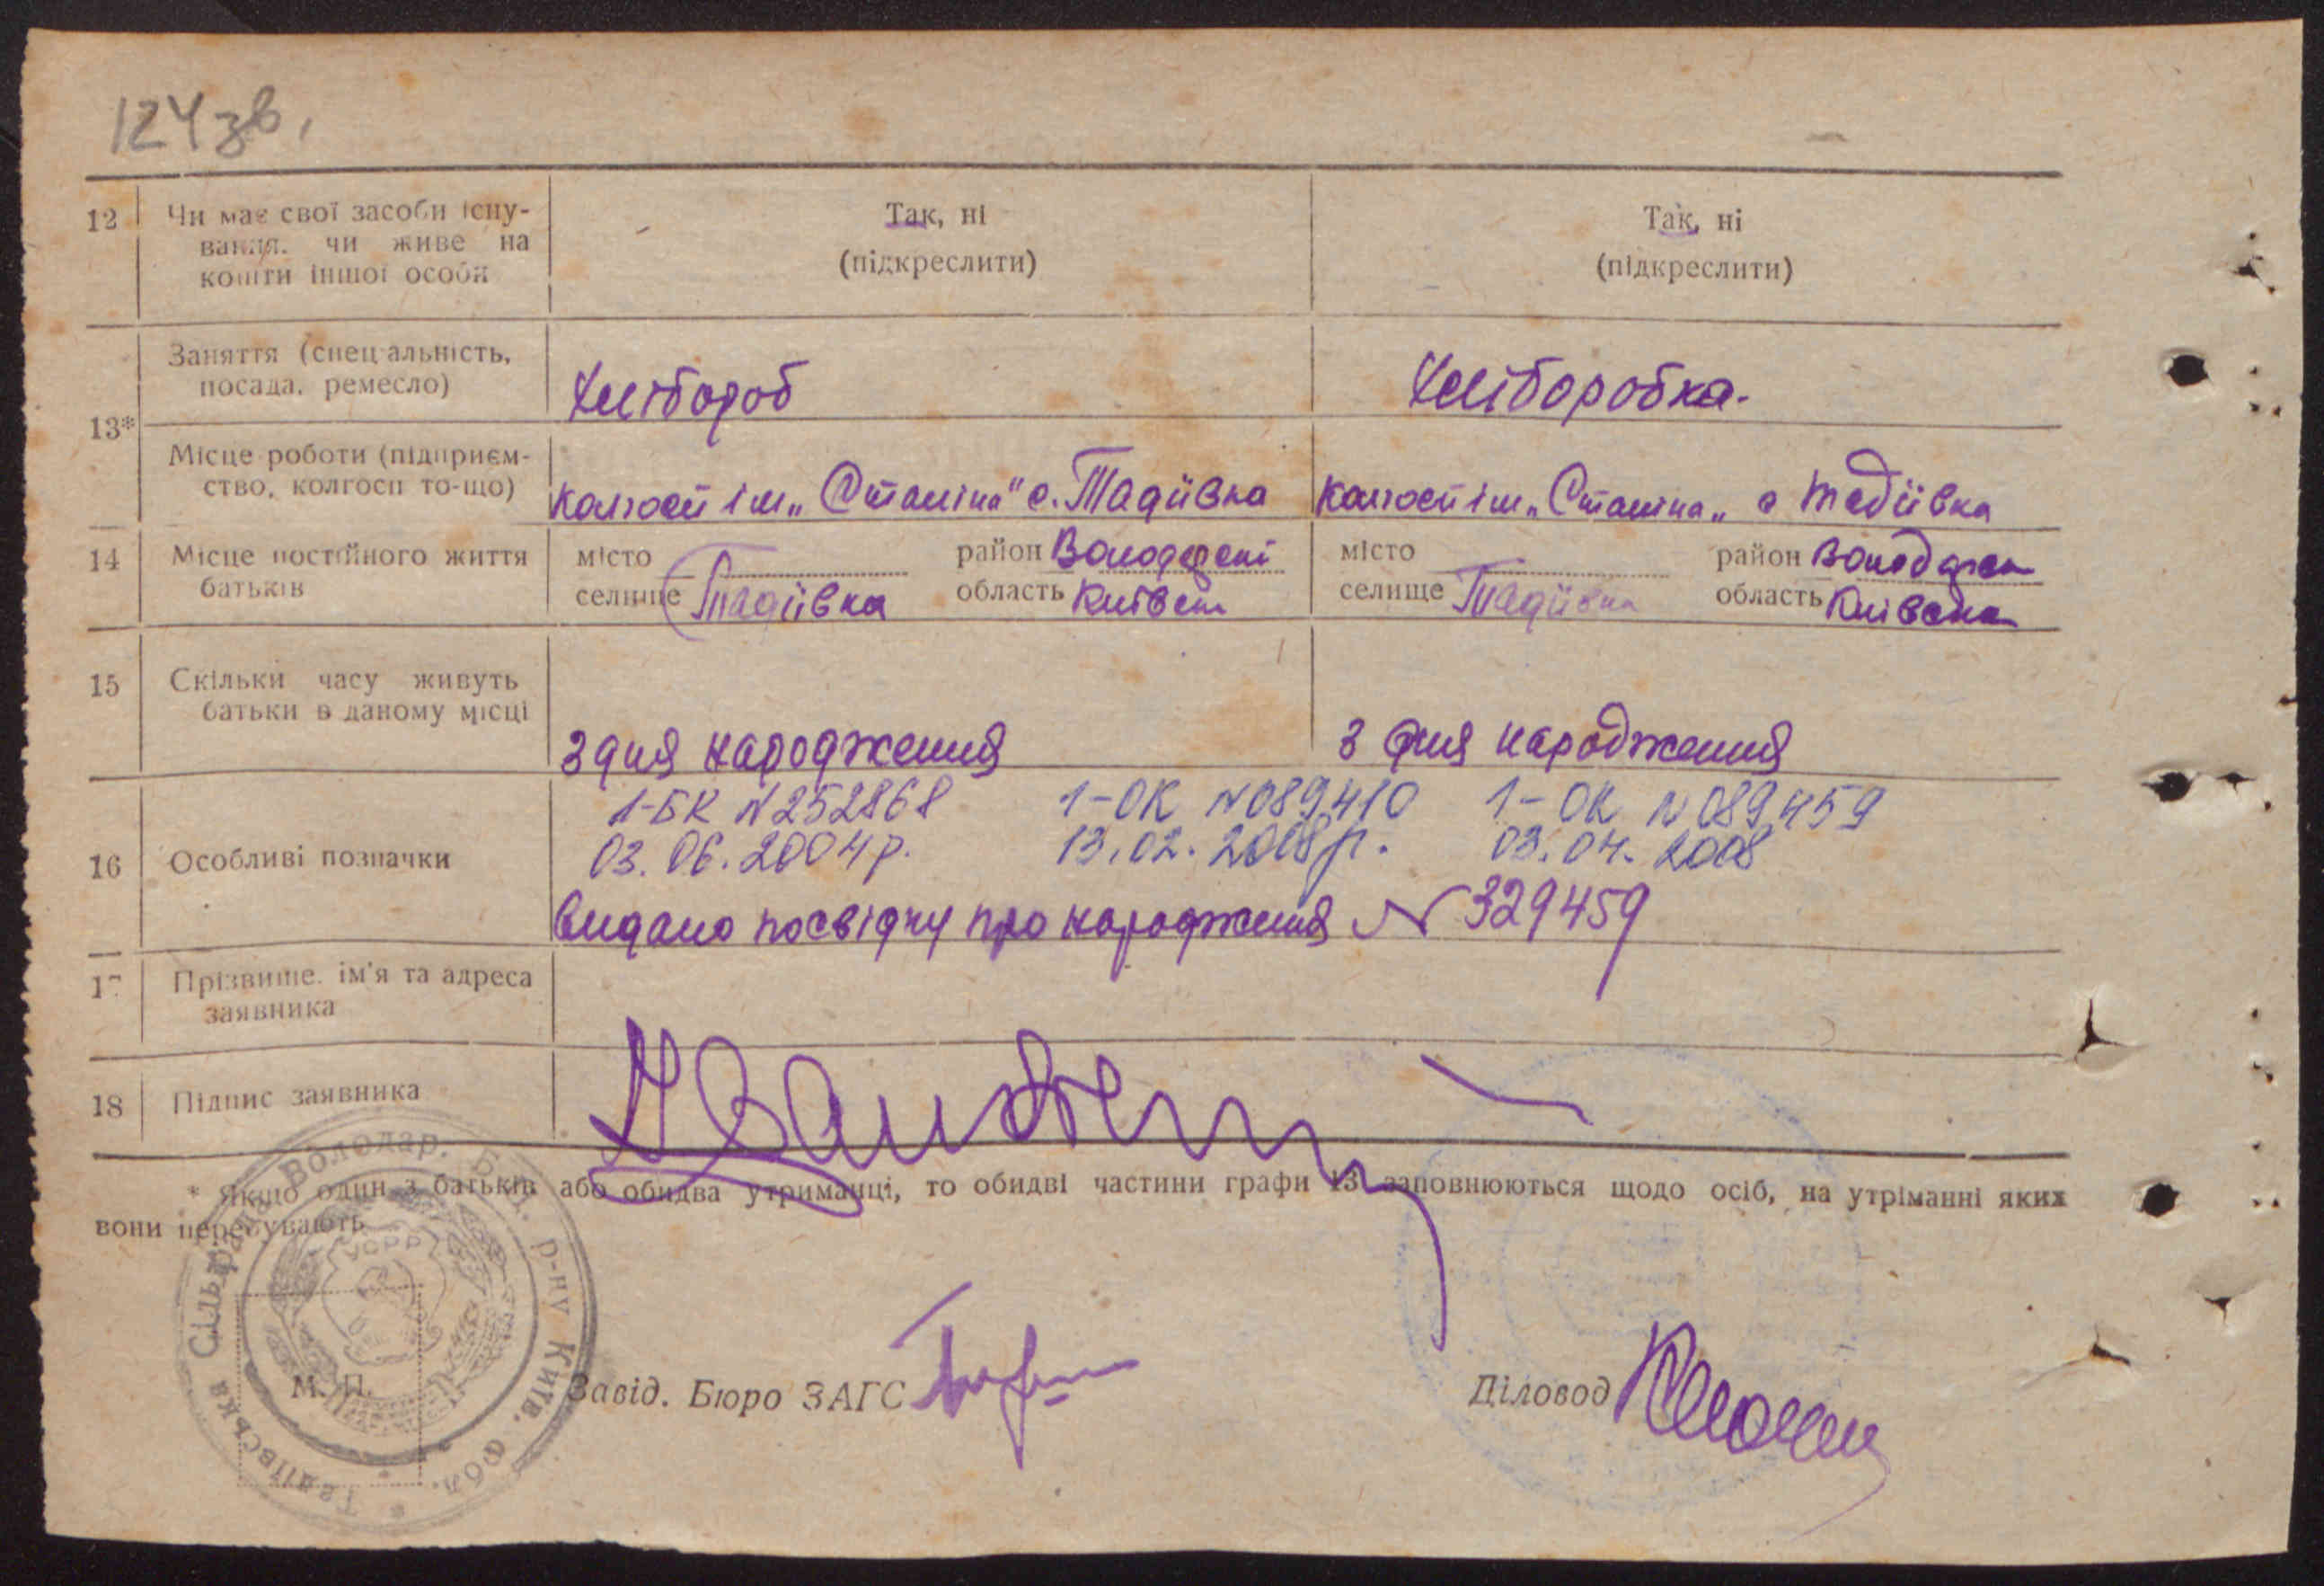 124 зв.
12 Чи має свої засоби існу-
вання, чи живе на
кошти іншої особи
Так, ні
(підкреслити)
Так, ні
(підкреслити)
13*
Заняття (спеціальність,
посада, ремесло)
Хлібороб
Хліборобка.
Місце роботи (підприєм-
ство, колгосп то-що)
колгосп ім „Сталіна" с. Тадіївка
колгосп ім „Сталіна„ с Тадіївка
14 Місце постійного життя
батьків
місто
район Володарскі
селище Тадіївка
область Київськ
місто
район Володарск
селище Тадіївка
область Київська
15 Скільки часу живуть
батьки в даному місці
з дня народження
з дня народження
16 Особливі позначки
1-БК N252868 1-ОК N089410 1-ОК N089459
03.06.2004р. 13.02.2008р. 03.04.2008
видано посвідку про народження N 329459
17 Прізвище, ім'я та адреса
заявника
18 Підпис заявника
* Якщо один з батьків або обидва утриманці, то обидві частини графи 13 заповнюються щодо осіб, на утріманні яких
вони перебувають
Тадіївська Сільська Рада Володар. р-ну Київ. Обл.
УСРР
М. П.
Завід. Бюро ЗАГС
Діловод